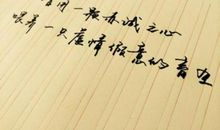 用一颗赤诚之心
喂养一只虚情假意的畜生